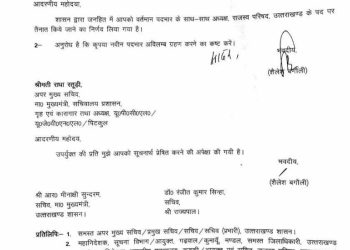 आदरणीय महोदय,
शासन द्वारा जनहित में आपको वर्तमान पदभार के साथ-साथ अध्यक्ष, राजस्व परिषद, उत्तराखण्ड के पद पर
तैनात किये जाने का निर्णय लिया गया है।
2- अनुरोध है कि कृपया नवीन पदभार अविलम्ब ग्रहण करने का कष्ट करें।
भवदीय,
(शैलेश बगौली)
श्रीमती राधा रतूड़ी,
अपर मुख्य सचिव,
मा० मुख्यमंत्री, सचिवालय प्रशासन,
गृह एवं कारागार तथा अध्यक्ष, यू०पी०सी०एल०/
यू०जे०वी०एन०एल०/पिटकुल
आदरणीय महोदय,
उपर्युक्त की प्रति मुझे आपको सूचनार्थ प्रेषित करने की अपेक्षा की गयी है।
भवदीय,
(शैलेश बगौली)
श्री आर० मीनाक्षी सुन्दरम, डॉ० रंजीत कुमार सिन्हा,
सचिव, सचिव,
मा० मुख्यमंत्री, श्री राज्यपाल।
उत्तराखण्ड शासन।
प्रतिलिपि:- 1. समस्त अपर मुख्य सचिव/प्रमुख सचिव/सचिव/सचिव (प्रभारी), उत्तराखण्ड शासन।
2. महानिदेशक, सूचना विभाग/आयुक्त, गढ़वाल/कुमायूँ, मण्डल, समस्त जिलाधिकारी, उत्तराखण्ड